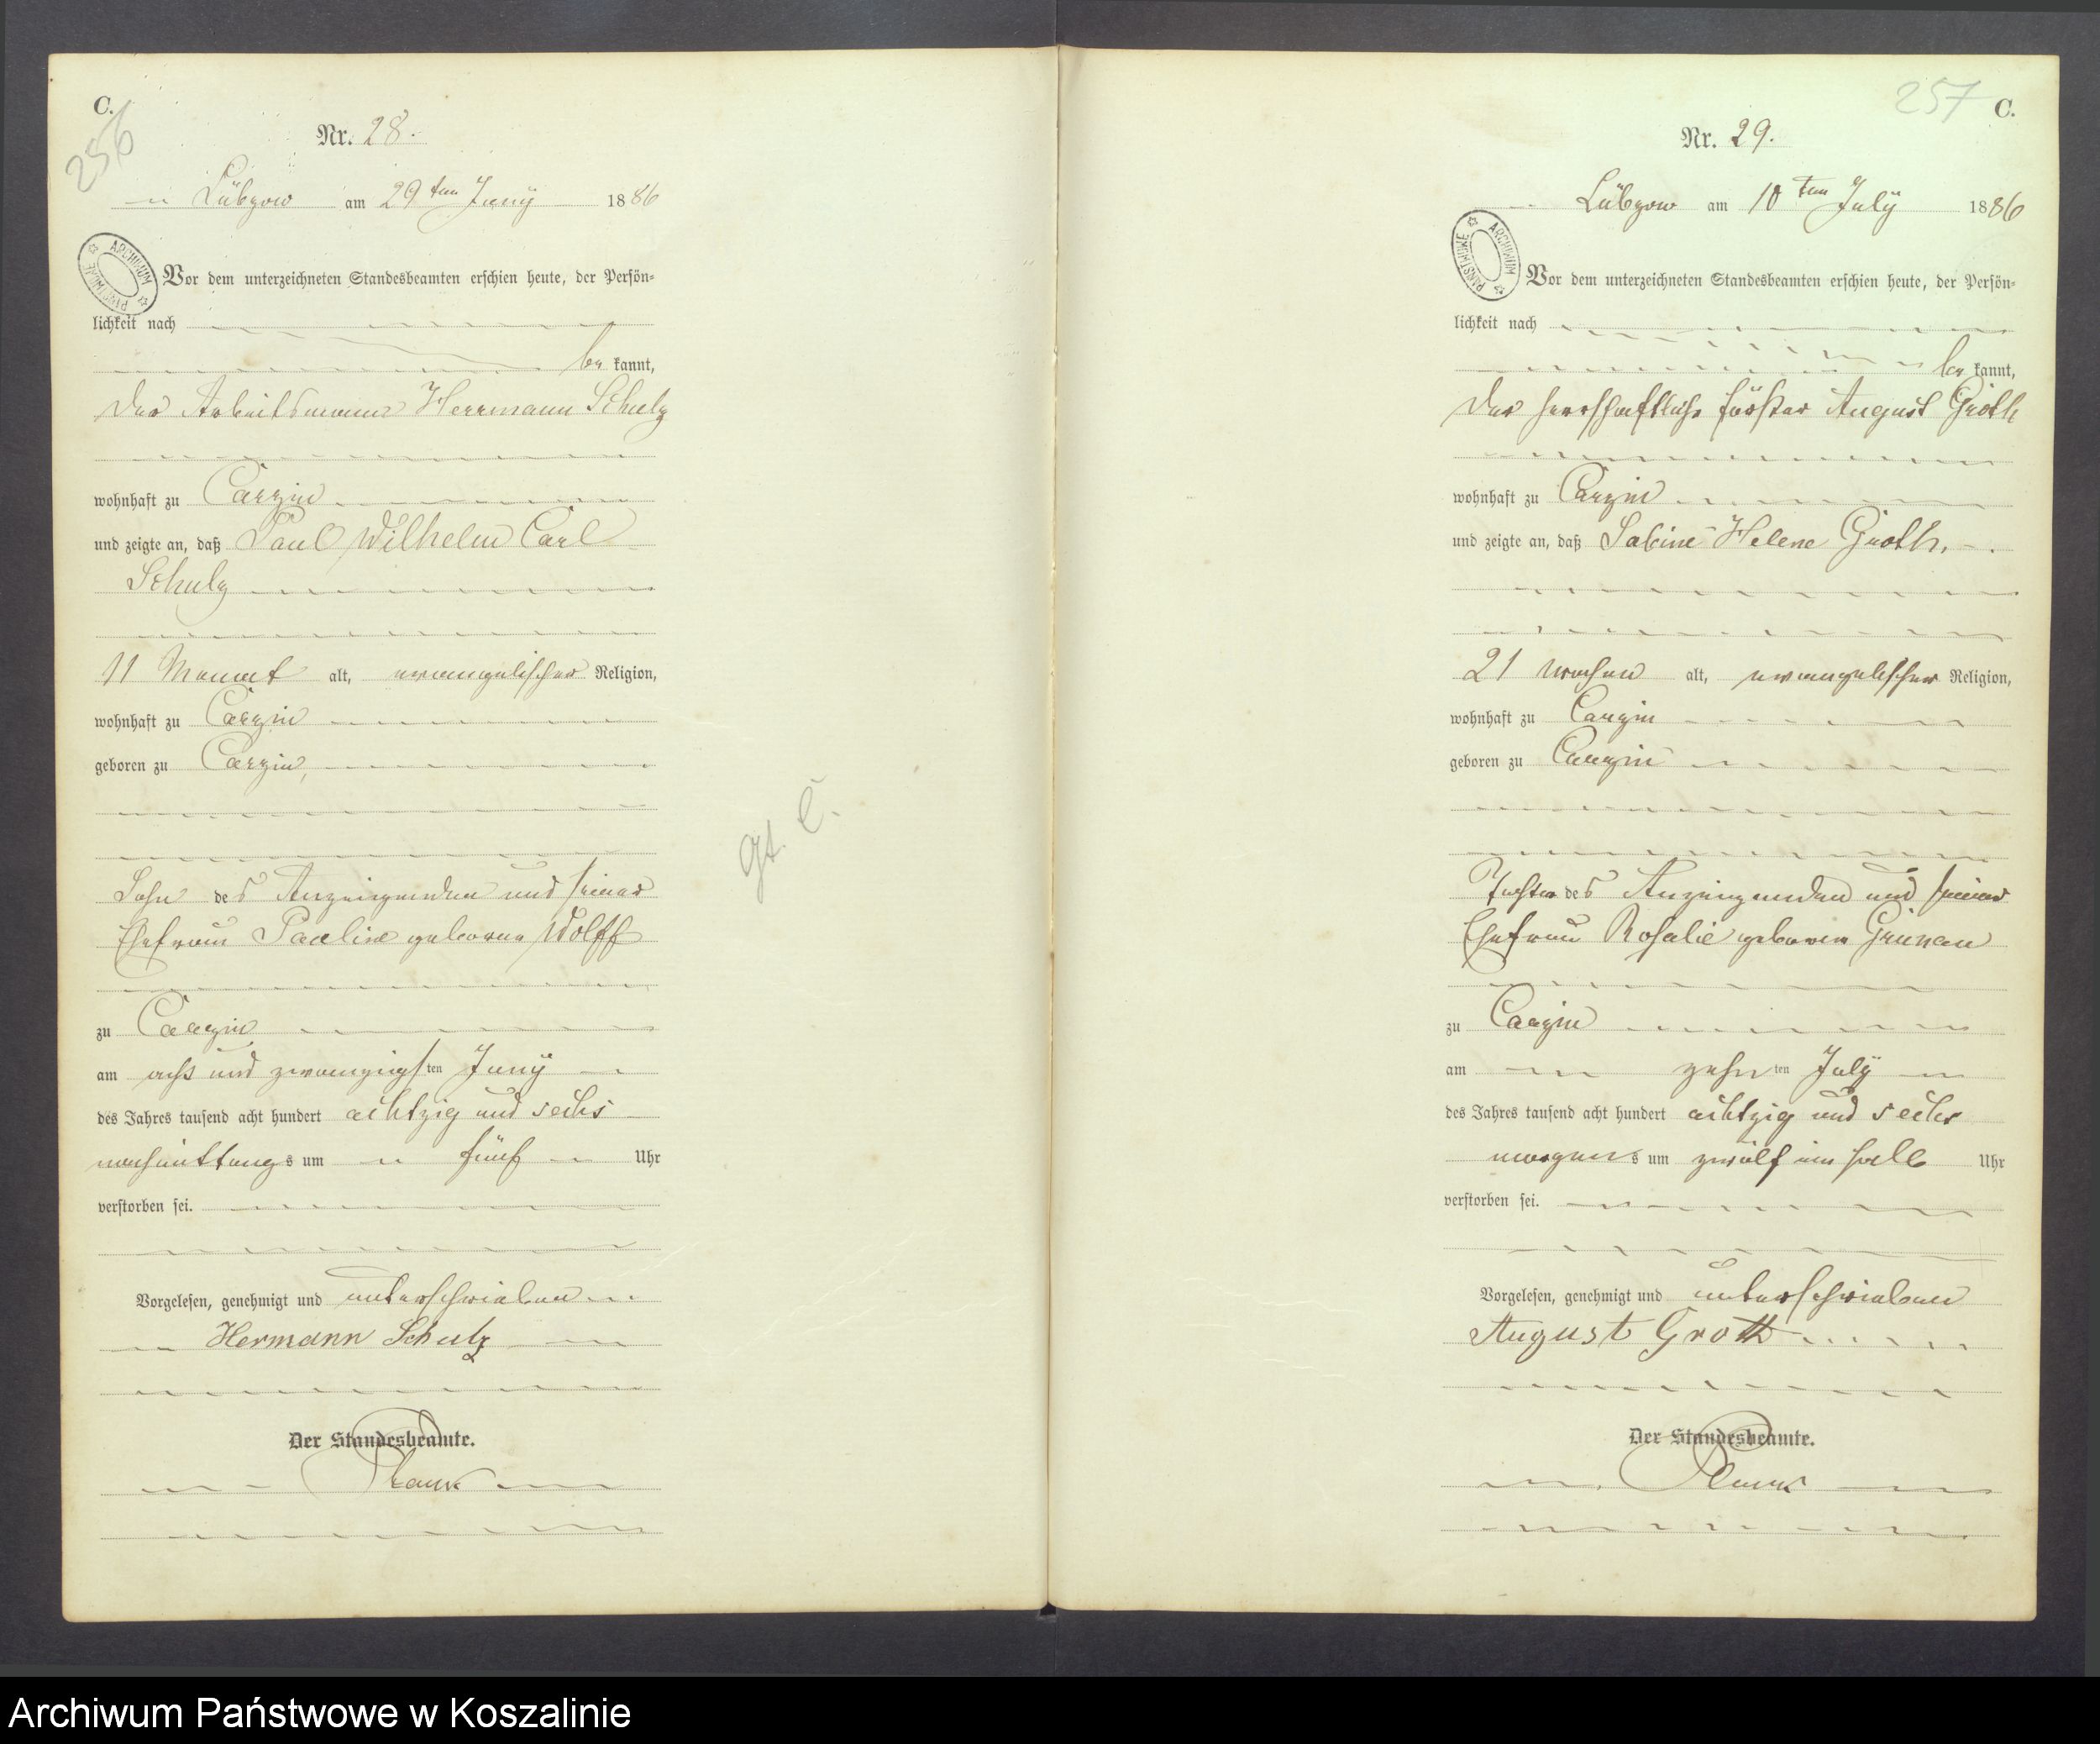 C.
256
Nr. 28.
Lübzow am 29ten Juny 1886
ARCHIWUM PAŃSTWOWE
Vor dem unterzeichneten Standesbeamten erschien heute, der Persön-
lichkeit nach
be kannt,
der Arbeitsmann Herrmann Schulz
wohnhaft zu Carzin
und zeigte an, daß Paul Wilhelm Carl
Schulz
11 Monat alt, evangelischer Religion,
wohnhaft zu Carzin
geboren zu Carzin,
Sohn des Anzeigenden und seiner
Ehefrau Pauline geborene Wolff
zu Carzin
am acht und zwanzigsten Juny
des Jahres tausend acht hundert achtzig und sechs
nachmittags um fünf Uhr
verstorben sei.
Vorgelesen, genehmigt und unterschrieben
Hermann Schulz
Der Standesbeamte.
gt. C.
257
C.
Nr. 29.
Lübzow am 10ten July 1886
ARCHIWUM PAŃSTWOWE
Vor dem unterzeichneten Standesbeamten erschien heute, der Persön-
lichkeit nach
be kannt,
der herrschaftliche Förster August Groth
wohnhaft zu Carzin
und zeigte an, daß Sabine Helene Groth,
21 Wochen alt, evangelischer Religion,
wohnhaft zu Carzin
geboren zu Carzin
Tochter des Anzeigenden und seiner
Ehefrau Rosalie geborene Grünau
zu Carzin
am zehnten July
des Jahres tausend acht hundert achtzig und sechs
morgens um zwölf ein halb Uhr
verstorben sei.
Vorgelesen, genehmigt und unterschrieben
August Groth
Der Standesbeamte.
Archiwum Państwowe w Koszalinie